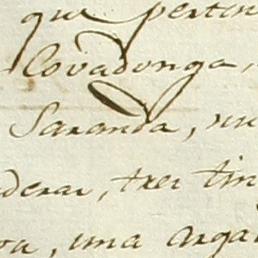 que pertin
Covadonga,
Saranda, un
derar, tres tin
una arga